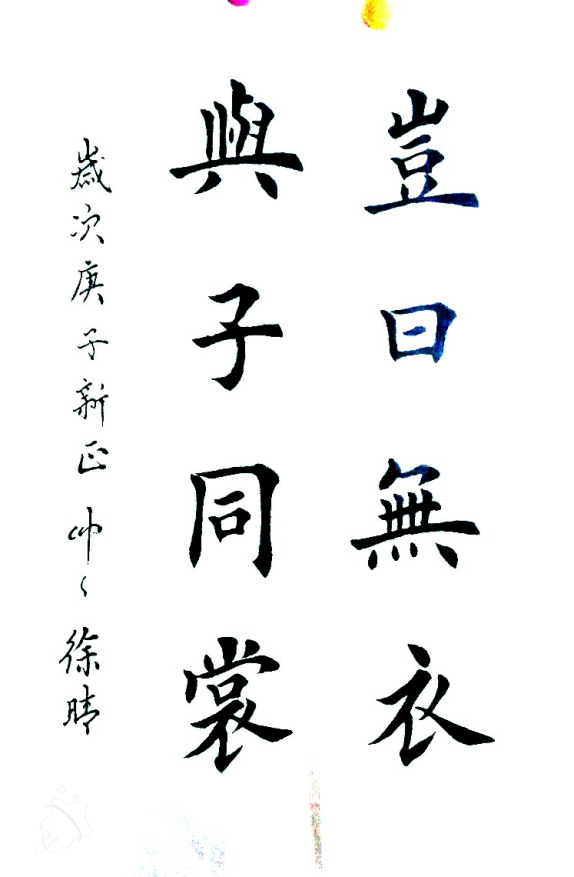 豈曰無衣
與子同裳
歲次庚子新正 徐晴